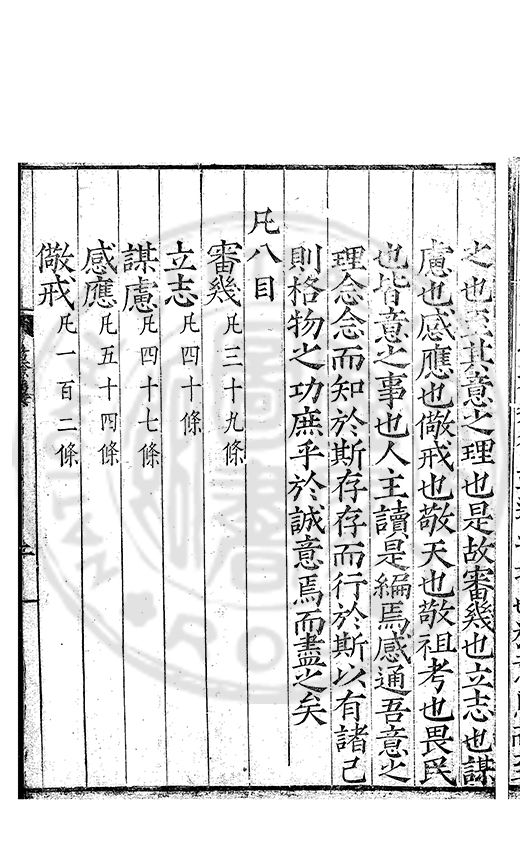 之也至其意之理也是故審幾也立志也謀
慮也感應也儆戒也敬天也敬祖考也畏民
也皆意之事也人主讀是編焉感通吾意之
理念念而知於斯存存而行於斯以有諸己
則格物之功庶乎於誠意焉而盡之矣
凡八目
審幾凡三十九條
立志凡四十條
謀慮凡四十七條
感應凡五十四條
儆戒凡一百二條